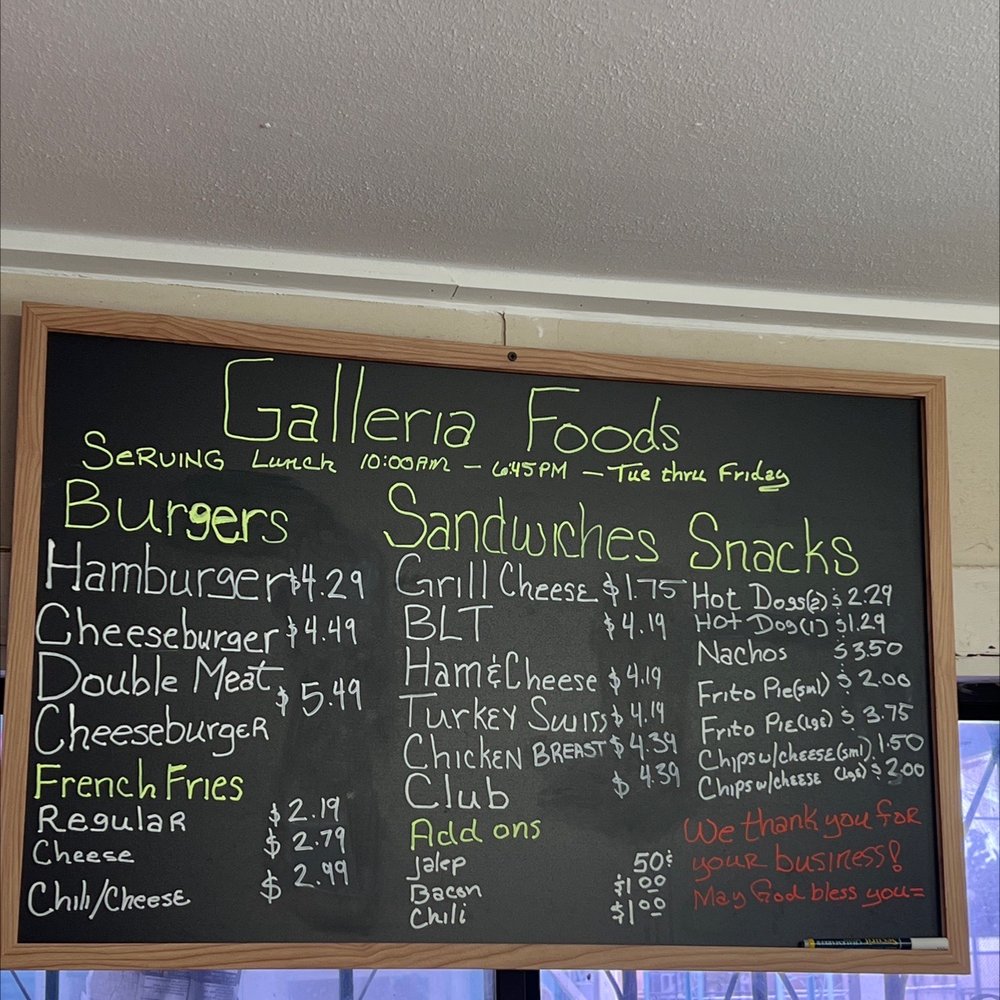 Galleria Foods
SERVING Lunch 10:00AM - 6:45PM - Tue thru Friday
Burgers
Hamburger $4.29
Cheeseburger $4.49
Double Meat $5.49
Cheeseburger
French Fries
Regular $2.19
Cheese $2.79
Chili/Cheese $2.99
Sandwiches
Grill Cheese $1.75
BLT $4.19
Ham & Cheese $4.19
Turkey Swiss $4.19
Chicken BREAST $4.39
Club $4.39
Add ons
Jalep 50¢
Bacon $1.00
Chili $1.00
Snacks
Hot Dogs(2) $2.29
Hot Dog(1) $1.29
Nachos $3.50
Frito Pie(sml) $2.00
Frito Pie(lge) $3.75
Chips w/cheese(sml) 1.50
Chips w/cheese (lge) $2.00
We thank you for
your business!
May God bless you=